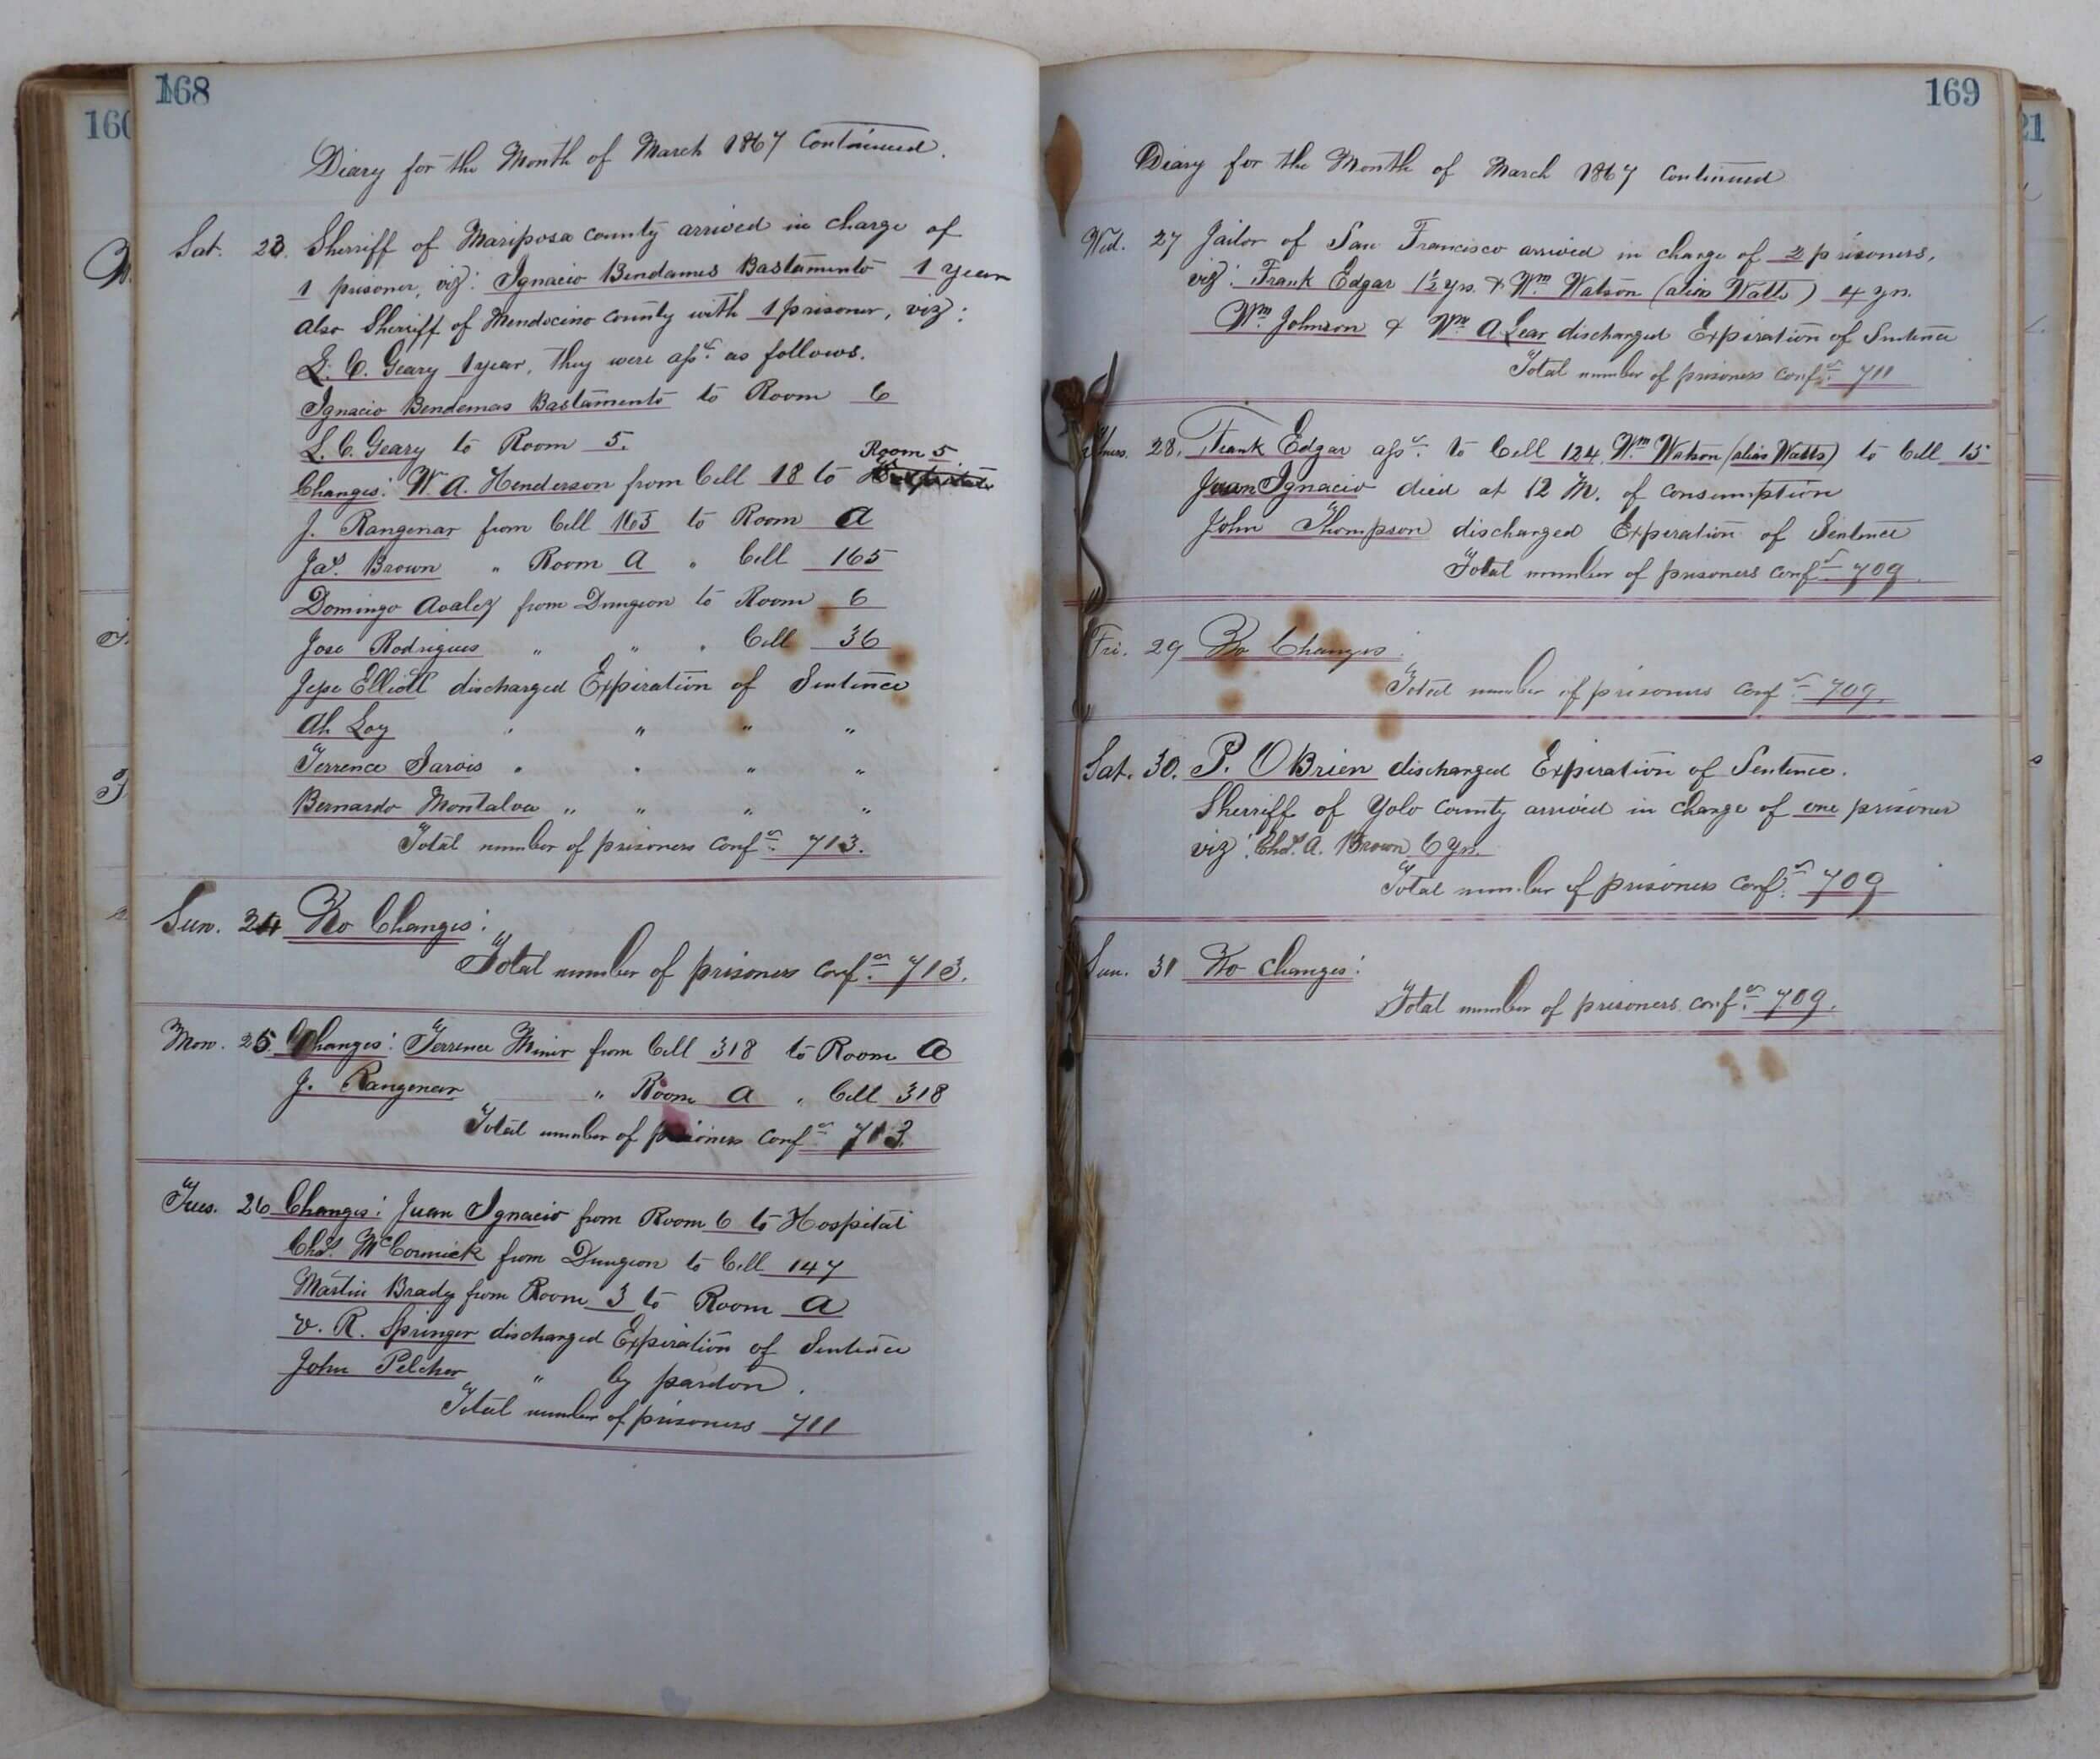 160
168
Diary for the Month of March 1867 Continued.
Sat. 23. Sherriff of Mariposa County arrived in charge of
1 prisoner, viz: Ignacio Bendamus Bastamento 1 year
also Sherriff of Mendocino County with 1 prisoner, viz:
L. C. Geary 1 year, they were assd. as follows.
Ignacio Bendemas Bastamento to Room 6
L. C. Geary to Room 5.
Room 5
Changes: W. A. Henderson from Cell 18 to Hospital
J. Rangenar from Cell 165 to Room A
Jas. Brown " Room A " Cell 165
Domingo Avalez from Dungeon to Room 6
Jose Rodrigues " " " Cell 36
Jesse Elliott discharged Expiration of Sentence
Ah Loy " " " "
Terrence Jarvis " " " "
Bernardo Montalva " " " "
Total number of prisoners confd. 713.
Sun. 24 No Changes:
Total number of prisoners confd. 713.
Mon. 25 Changes: Terrence Minor from Cell 318 to Room A
J. Rangenar " Room A " Cell 318
Total number of prisoners confd 713.
Tues. 26 Changes: Juan Ignacio from Room 6 to Hospital
Chas. McCormick from Dungeon to Cell 147
Martin Brady from Room 3 to Room A
V. R. Springer discharged Expiration of Sentence
John Pelcher " by pardon.
Total number of prisoners 711
169
Diary for the Month of March 1867 Continued
Wed. 27 Jailor of San Francisco arrived in charge of 2 prisoners,
viz: Frank Edgar 1½ yrs. & Wm. Watson (alias Watts) 4 yrs.
Wm. Johnson & Wm. A Lear discharged Expiration of Sentence
Total number of prisoners confd. 711
Thurs. 28. Frank Edgar assd. to Cell 124. Wm. Watson (alias Watts) to Cell 15
Juan Ignacio died at 12 M. of consumption
John Thompson discharged Expiration of Sentence
Total number of prisoners confd. 709
Fri. 29 No Changes.
Total number of prisoners confd. 709.
Sat. 30. P. O'Brien discharged Expiration of Sentence.
Sherriff of Yolo County arrived in charge of one prisoner
viz: Chas. A. Brown 6 yrs.
Total number of prisoners confd. 709
Sun. 31 No changes:
Total number of prisoners confd. 709.